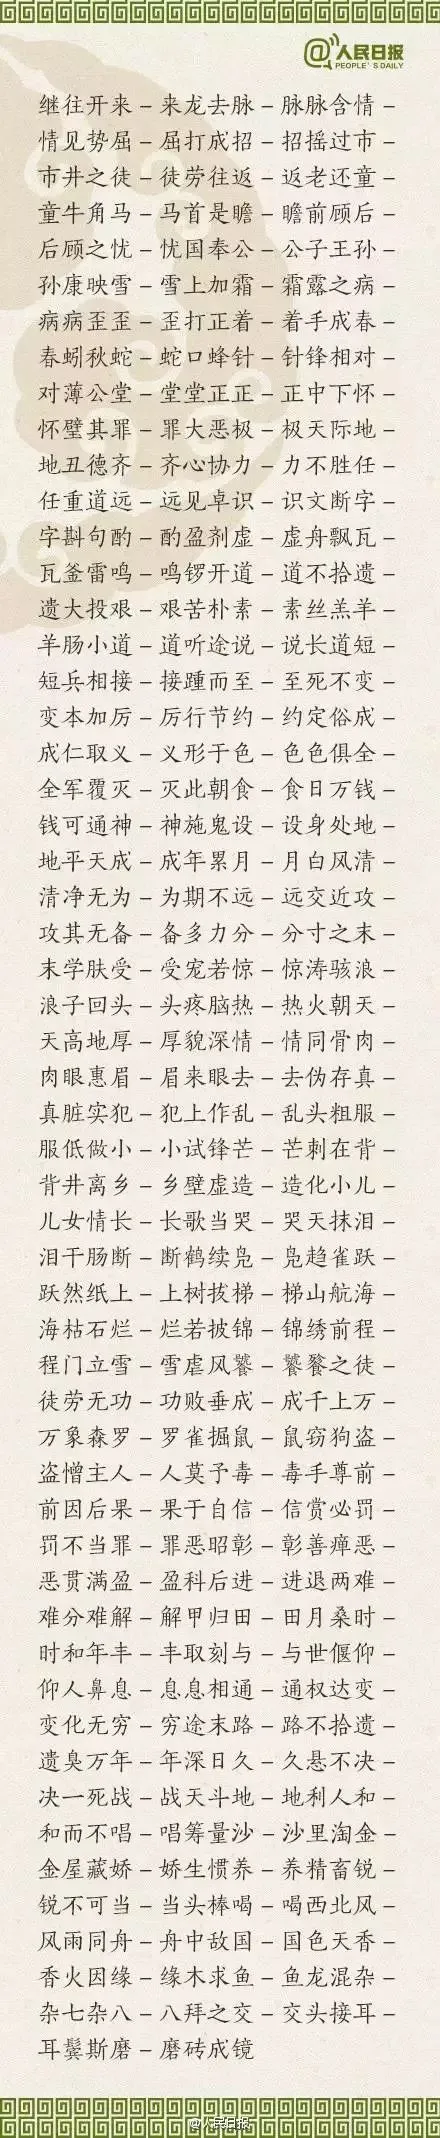 @人民日报
PEOPLE'S DAILY
继往开来－来龙去脉－脉脉含情－
情见势屈－屈打成招－招摇过市－
市井之徒－徒劳往返－返老还童－
童牛角马－马首是瞻－瞻前顾后－
后顾之忧－忧国奉公－公子王孙－
孙康映雪－雪上加霜－霜露之病－
病病歪歪－歪打正着－着手成春－
春蚓秋蛇－蛇口蜂针－针锋相对－
对薄公堂－堂堂正正－正中下怀－
怀壁其罪－罪大恶极－极天际地－
地丑德齐－齐心协力－力不胜任－
任重道远－远见卓识－识文断字－
字斟句酌－酌盈剂虚－虚舟飘瓦－
瓦釜雷鸣－鸣锣开道－道不拾遗－
遗大投艰－艰苦朴素－素丝羔羊－
羊肠小道－道听途说－说长道短－
短兵相接－接踵而至－至死不变－
变本加厉－厉行节约－约定俗成－
成仁取义－义形于色－色色俱全－
全军覆灭－灭此朝食－食日万钱－
钱可通神－神施鬼设－设身处地－
地平天成－成年累月－月白风清－
清净无为－为期不远－远交近攻－
攻其无备－备多力分－分寸之末－
末学肤受－受宠若惊－惊涛骇浪－
浪子回头－头疼脑热－热火朝天－
天高地厚－厚貌深情－情同骨肉－
肉眼惠眉－眉来眼去－去伪存真－
真脏实犯－犯上作乱－乱头粗服－
服低做小－小试锋芒－芒刺在背－
背井离乡－乡壁虚造－造化小儿－
儿女情长－长歌当哭－哭天抹泪－
泪干肠断－断鹤续凫－凫趋雀跃－
跃然纸上－上树拔梯－梯山航海－
海枯石烂－烂若披锦－锦绣前程－
程门立雪－雪虐风饕－饕餮之徒－
徒劳无功－功败垂成－成千上万－
万象森罗－罗雀掘鼠－鼠窃狗盗－
盗憎主人－人莫予毒－毒手尊前－
前因后果－果于自信－信赏必罚－
罚不当罪－罪恶昭彰－彰善瘅恶－
恶贯满盈－盈科后进－进退两难－
难分难解－解甲归田－田月桑时－
时和年丰－丰取刻与－与世偃仰－
仰人鼻息－息息相通－通权达变－
变化无穷－穷途末路－路不拾遗－
遗臭万年－年深日久－久悬不决－
决一死战－战天斗地－地利人和－
和而不唱－唱筹量沙－沙里淘金－
金屋藏娇－娇生惯养－养精畜锐－
锐不可当－当头棒喝－喝西北风－
风雨同舟－舟中敌国－国色天香－
香火因缘－缘木求鱼－鱼龙混杂－
杂七杂八－八拜之交－交头接耳－
耳鬓斯磨－磨砖成镜
@人民日报